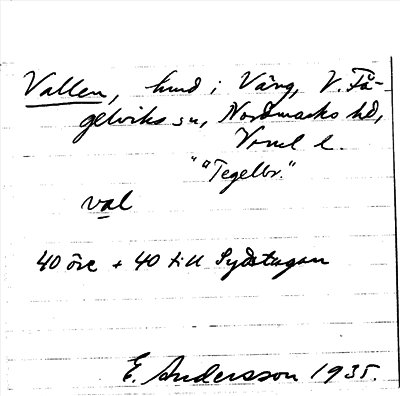 Vallen, hmd i Väng, V. Få-
gelviks sn, Nordmarks hd,
Vrml l.
" "Tegelbr."
val
40 öre + 40 till Sydstugan
E. Andersson 1935.